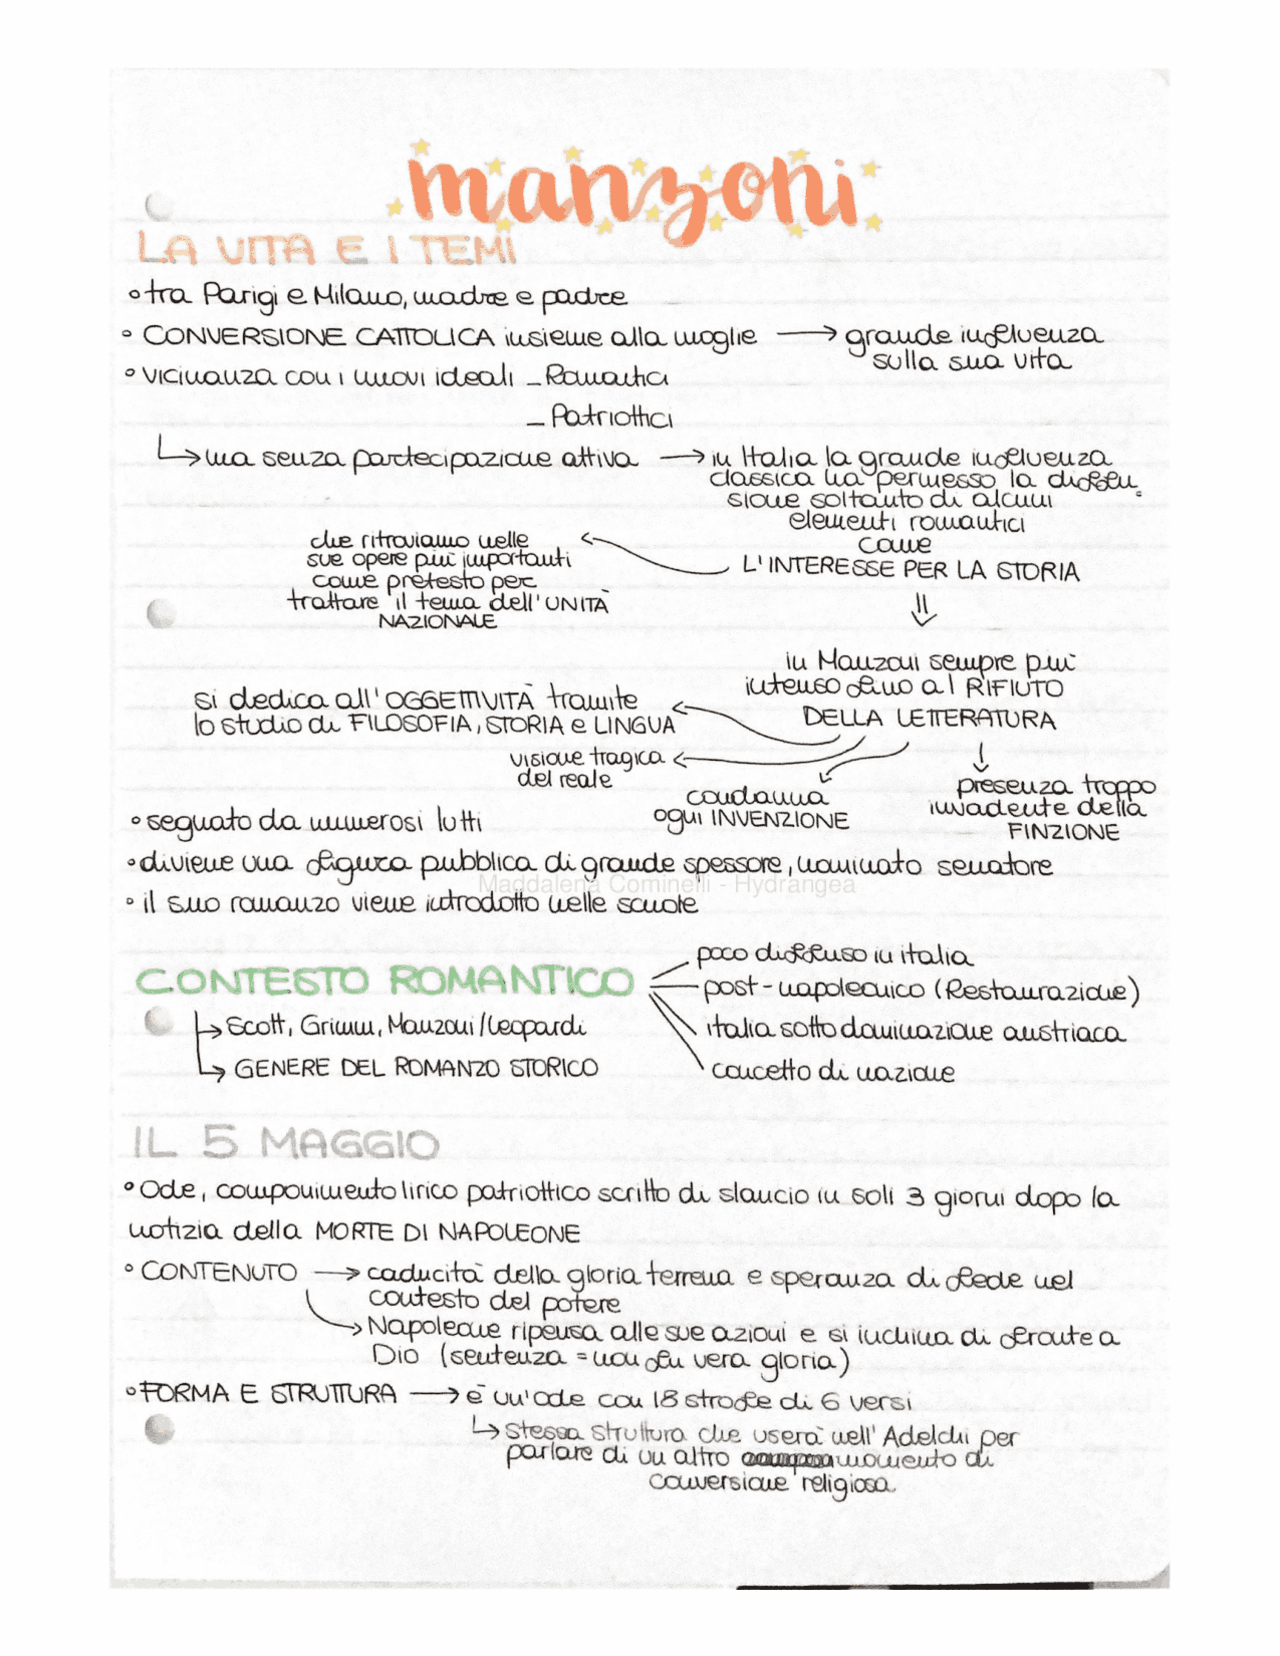 manzoni
LA VITA E I TEMI
° tra Parigi e Milano, madre e padre
° CONVERSIONE CATTOLICA insieme alla moglie → grande influenza
sulla sua vita
° vicinanza con i nuovi ideali - Romantici
- Patriottici
↳ ma senza partecipazione attiva → in Italia la grande influenza
classica ha permesso la diffu
sione soltanto di alcuni
elementi romantici
come
L'INTERESSE PER LA STORIA
che ritroviamo nelle
sue opere più importanti
come pretesto per
trattare il tema dell'UNITÀ
NAZIONALE
⇓
in Manzoni sempre più
intenso fino al RIFIUTO
DELLA LETTERATURA
si dedica all'OGGETTIVITÀ tramite
lo studio di FILOSOFIA, STORIA e LINGUA
visione tragica
del reale
condanna
ogni INVENZIONE
presenza troppo
invadente della
FINZIONE
° segnato da numerosi lutti
° diviene una figura pubblica di grande spessore, nominato senatore
Maddalena Cominelli - Hydrangea
° il suo romanzo viene introdotto nelle scuole
CONTESTO ROMANTICO
poco diffuso in italia
post-napoleonico (Restaurazione)
italia sotto dominazione austriaca
concetto di nazione
↳ Scott, Grimm, Manzoni/Leopardi
↳ GENERE DEL ROMANZO STORICO
IL 5 MAGGIO
° Ode, componimento lirico patriottico scritto di slancio in soli 3 giorni dopo la
notizia della MORTE DI NAPOLEONE
° CONTENUTO → caducità della gloria terrena e speranza di fede nel
contesto del potere
→ Napoleone ripensa alle sue azioni e si inchina di fronte a
Dio (sentenza = non fu vera gloria)
° FORMA E STRUTTURA → è un'ode con 18 strofe di 6 versi
↳ stessa struttura che userà nell'Adelchi per
parlare di un altro momento di
conversione religiosa